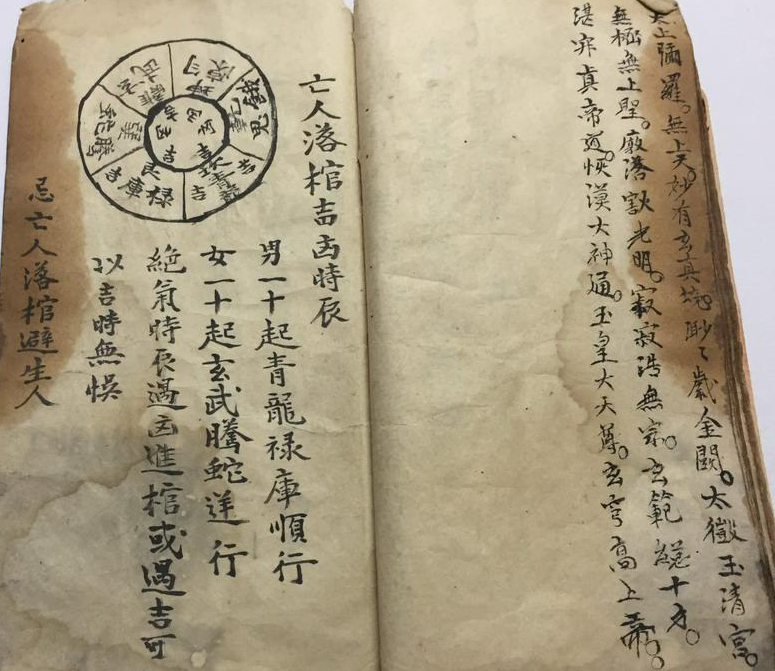 太上彌羅。無上天。妙有玄真境。渺々
金闕。太微玉清宮。
無極無上聖。廓落
光明。寂寂浩無宗。玄範總十方。
湛寂真帝道。恢漠大神通。玉皇大天尊。玄穹高上帝。
亡人落棺吉凶時辰
男一十起青龍禄庫順行
女一十起玄武騰蛇逆行
絶氣時辰遇凶進棺或遇吉可
以吉時無悞
忌亡人落棺避生人
玄武
騰蛇
巽
艮
庫禄
青龍
坎
吉
吉
吉
凶
凶